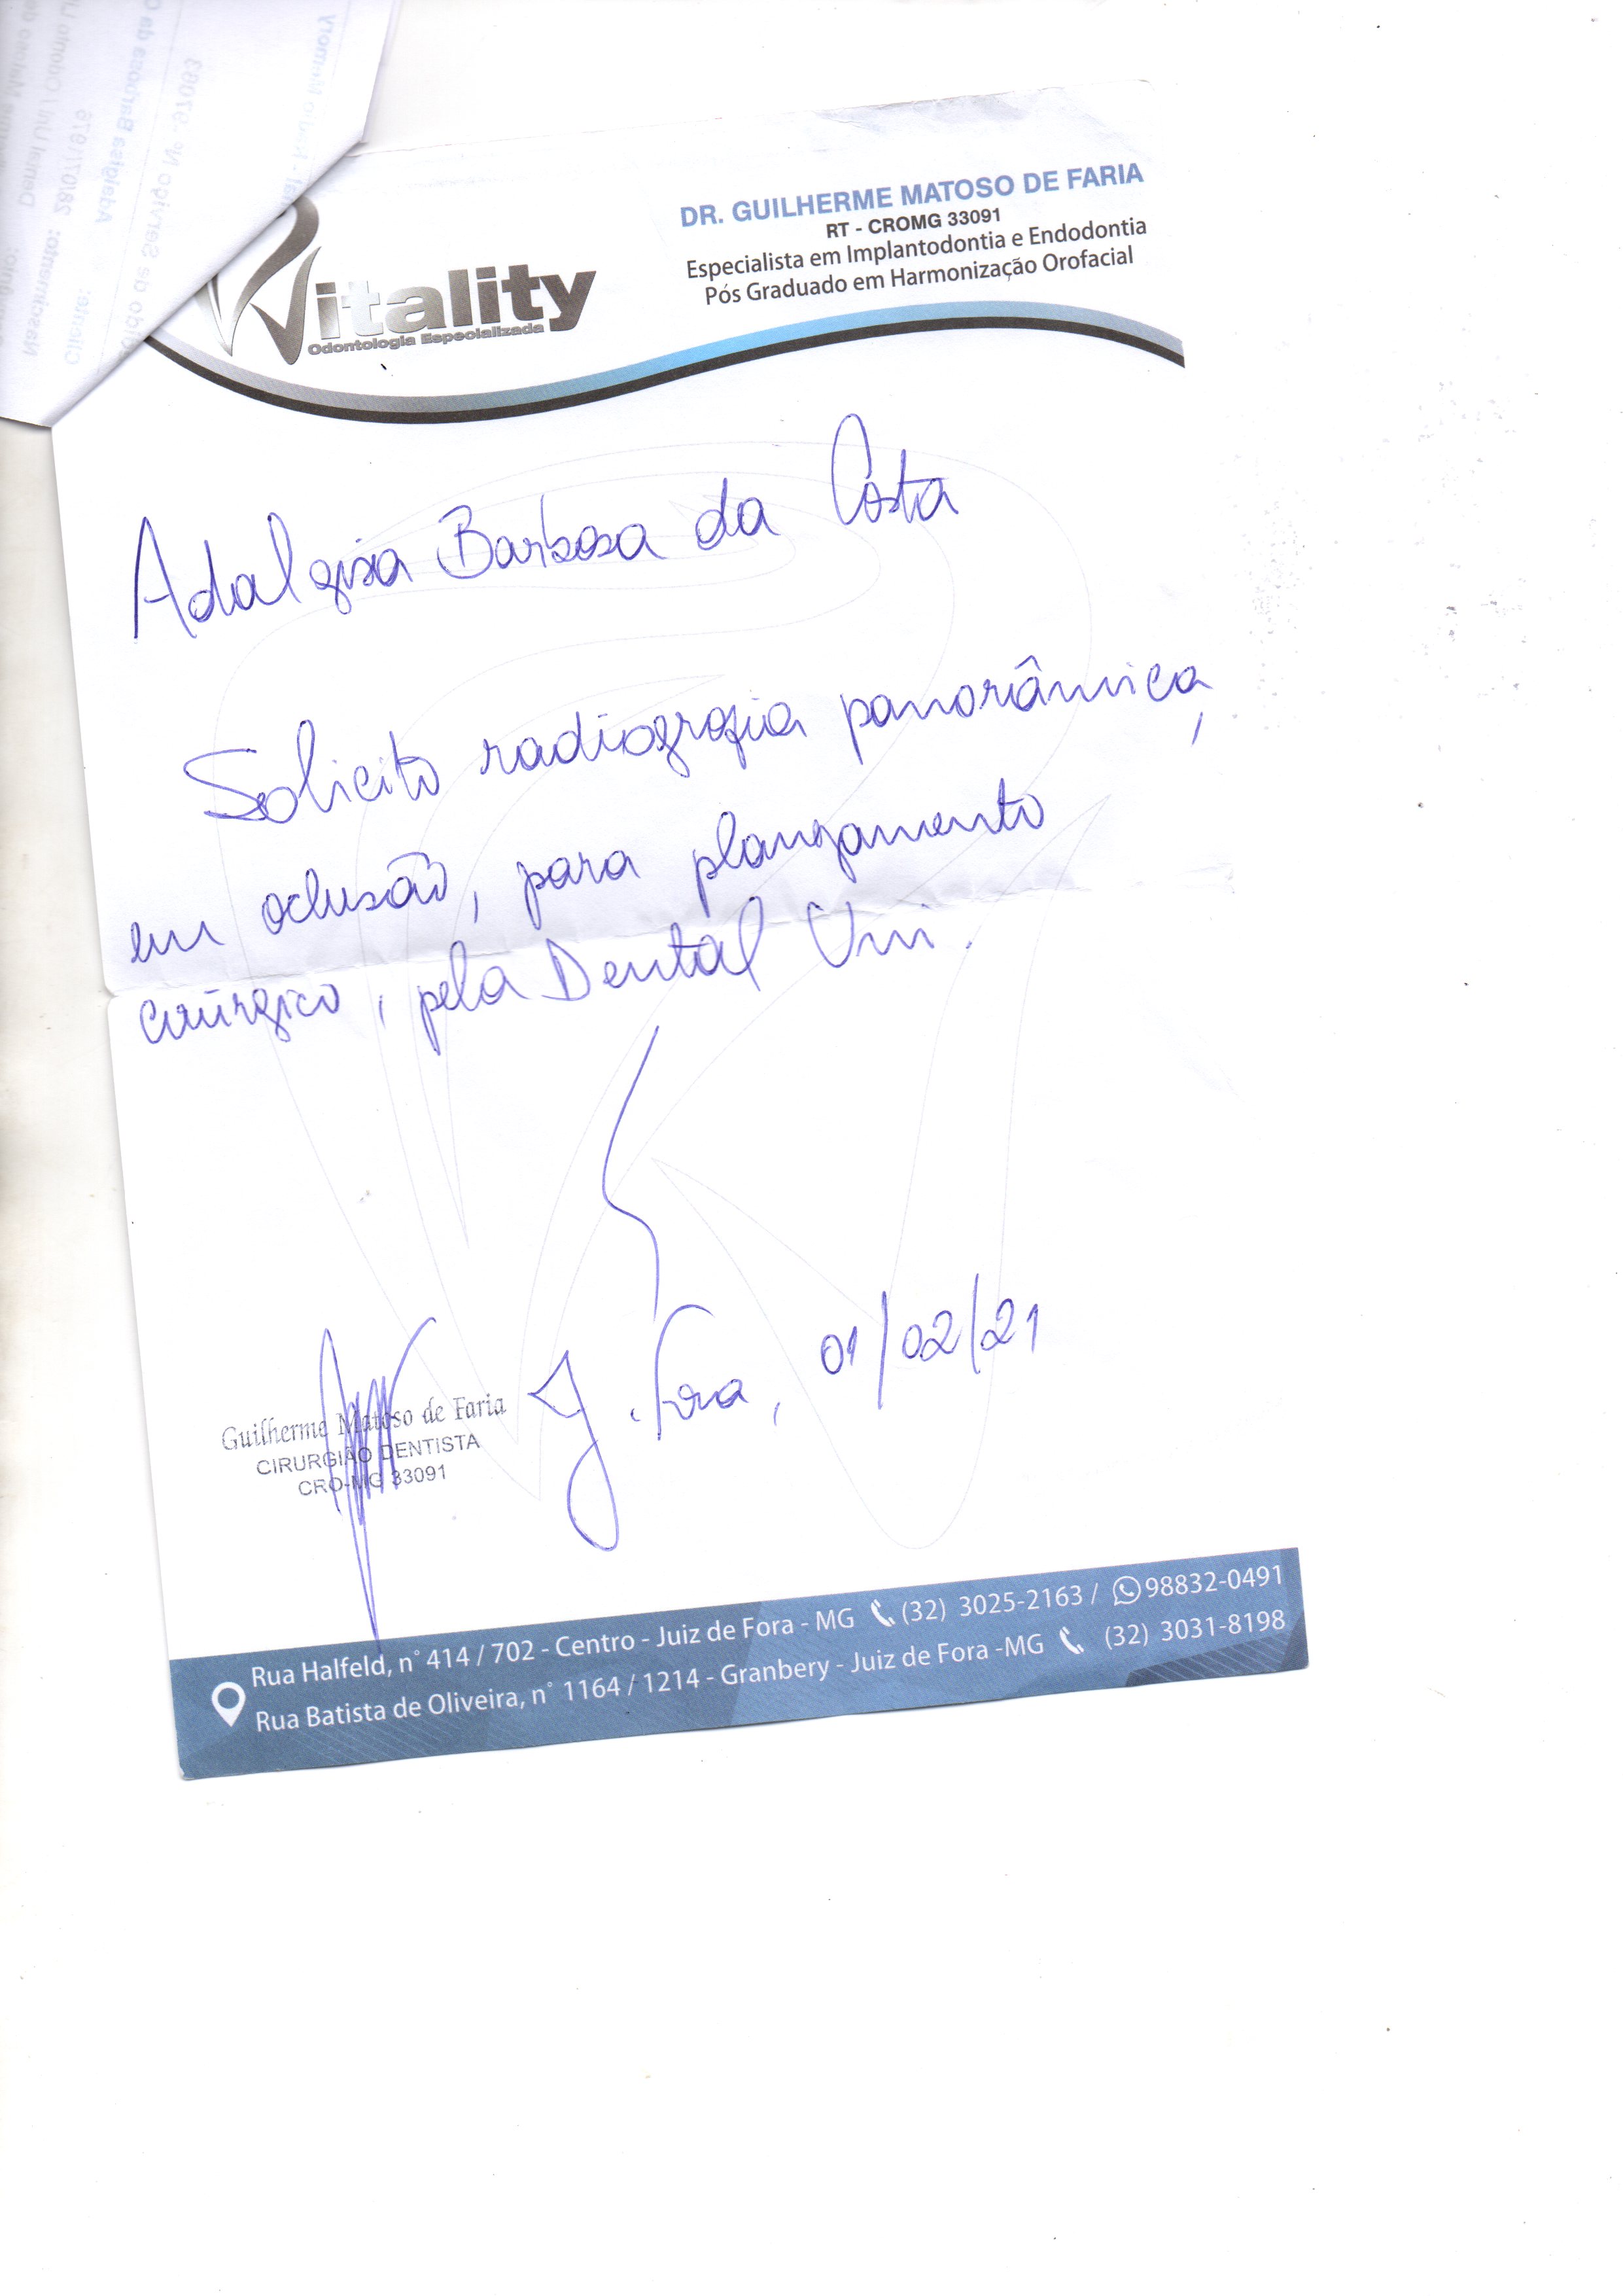 Vitality
Odontologia Especializada
DR. GUILHERME MATOSO DE FARIA
RT - CROMG 33091
Especialista em Implantodontia e Endodontia
Pós Graduado em Harmonização Orofacial
Adalgisa Barbosa da Costa
Solicito radiografia panorâmica,
em oclusão, para planejamento
cirúrgico, pela Dental Uni.
J. Fora, 01/02/21
Guilherme Matoso de Faria
CIRURGIÃO DENTISTA
CRO-MG 33091
Rua Halfeld, n° 414 / 702 - Centro - Juiz de Fora - MG (32) 3025-2163 / 98832-0491
Rua Batista de Oliveira, n° 1164 / 1214 - Granbery - Juiz de Fora -MG (32) 3031-8198